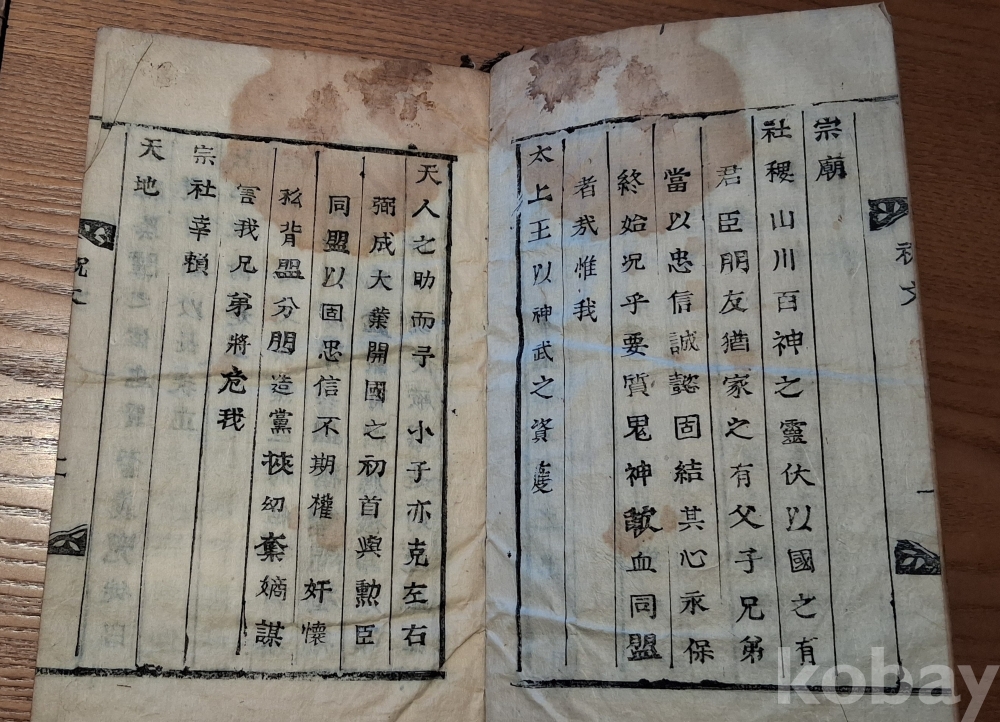 祝文
一
宗廟
社稷山川百神之靈伏以國之有
君臣朋友猶家之有父子兄弟
當以忠信誠固結其心永保
終始况乎要質鬼神歃血同盟
者哉惟我
太上王以神武之資
天人之助而予小子亦克左右
弼成大業開國之初首與勳臣
同盟以固忠信不期權奸懷
私背盟分朋造黨挾幼棄嫡謀
害我兄弟將危我
宗社幸賴
天地
祝文
二
kobay